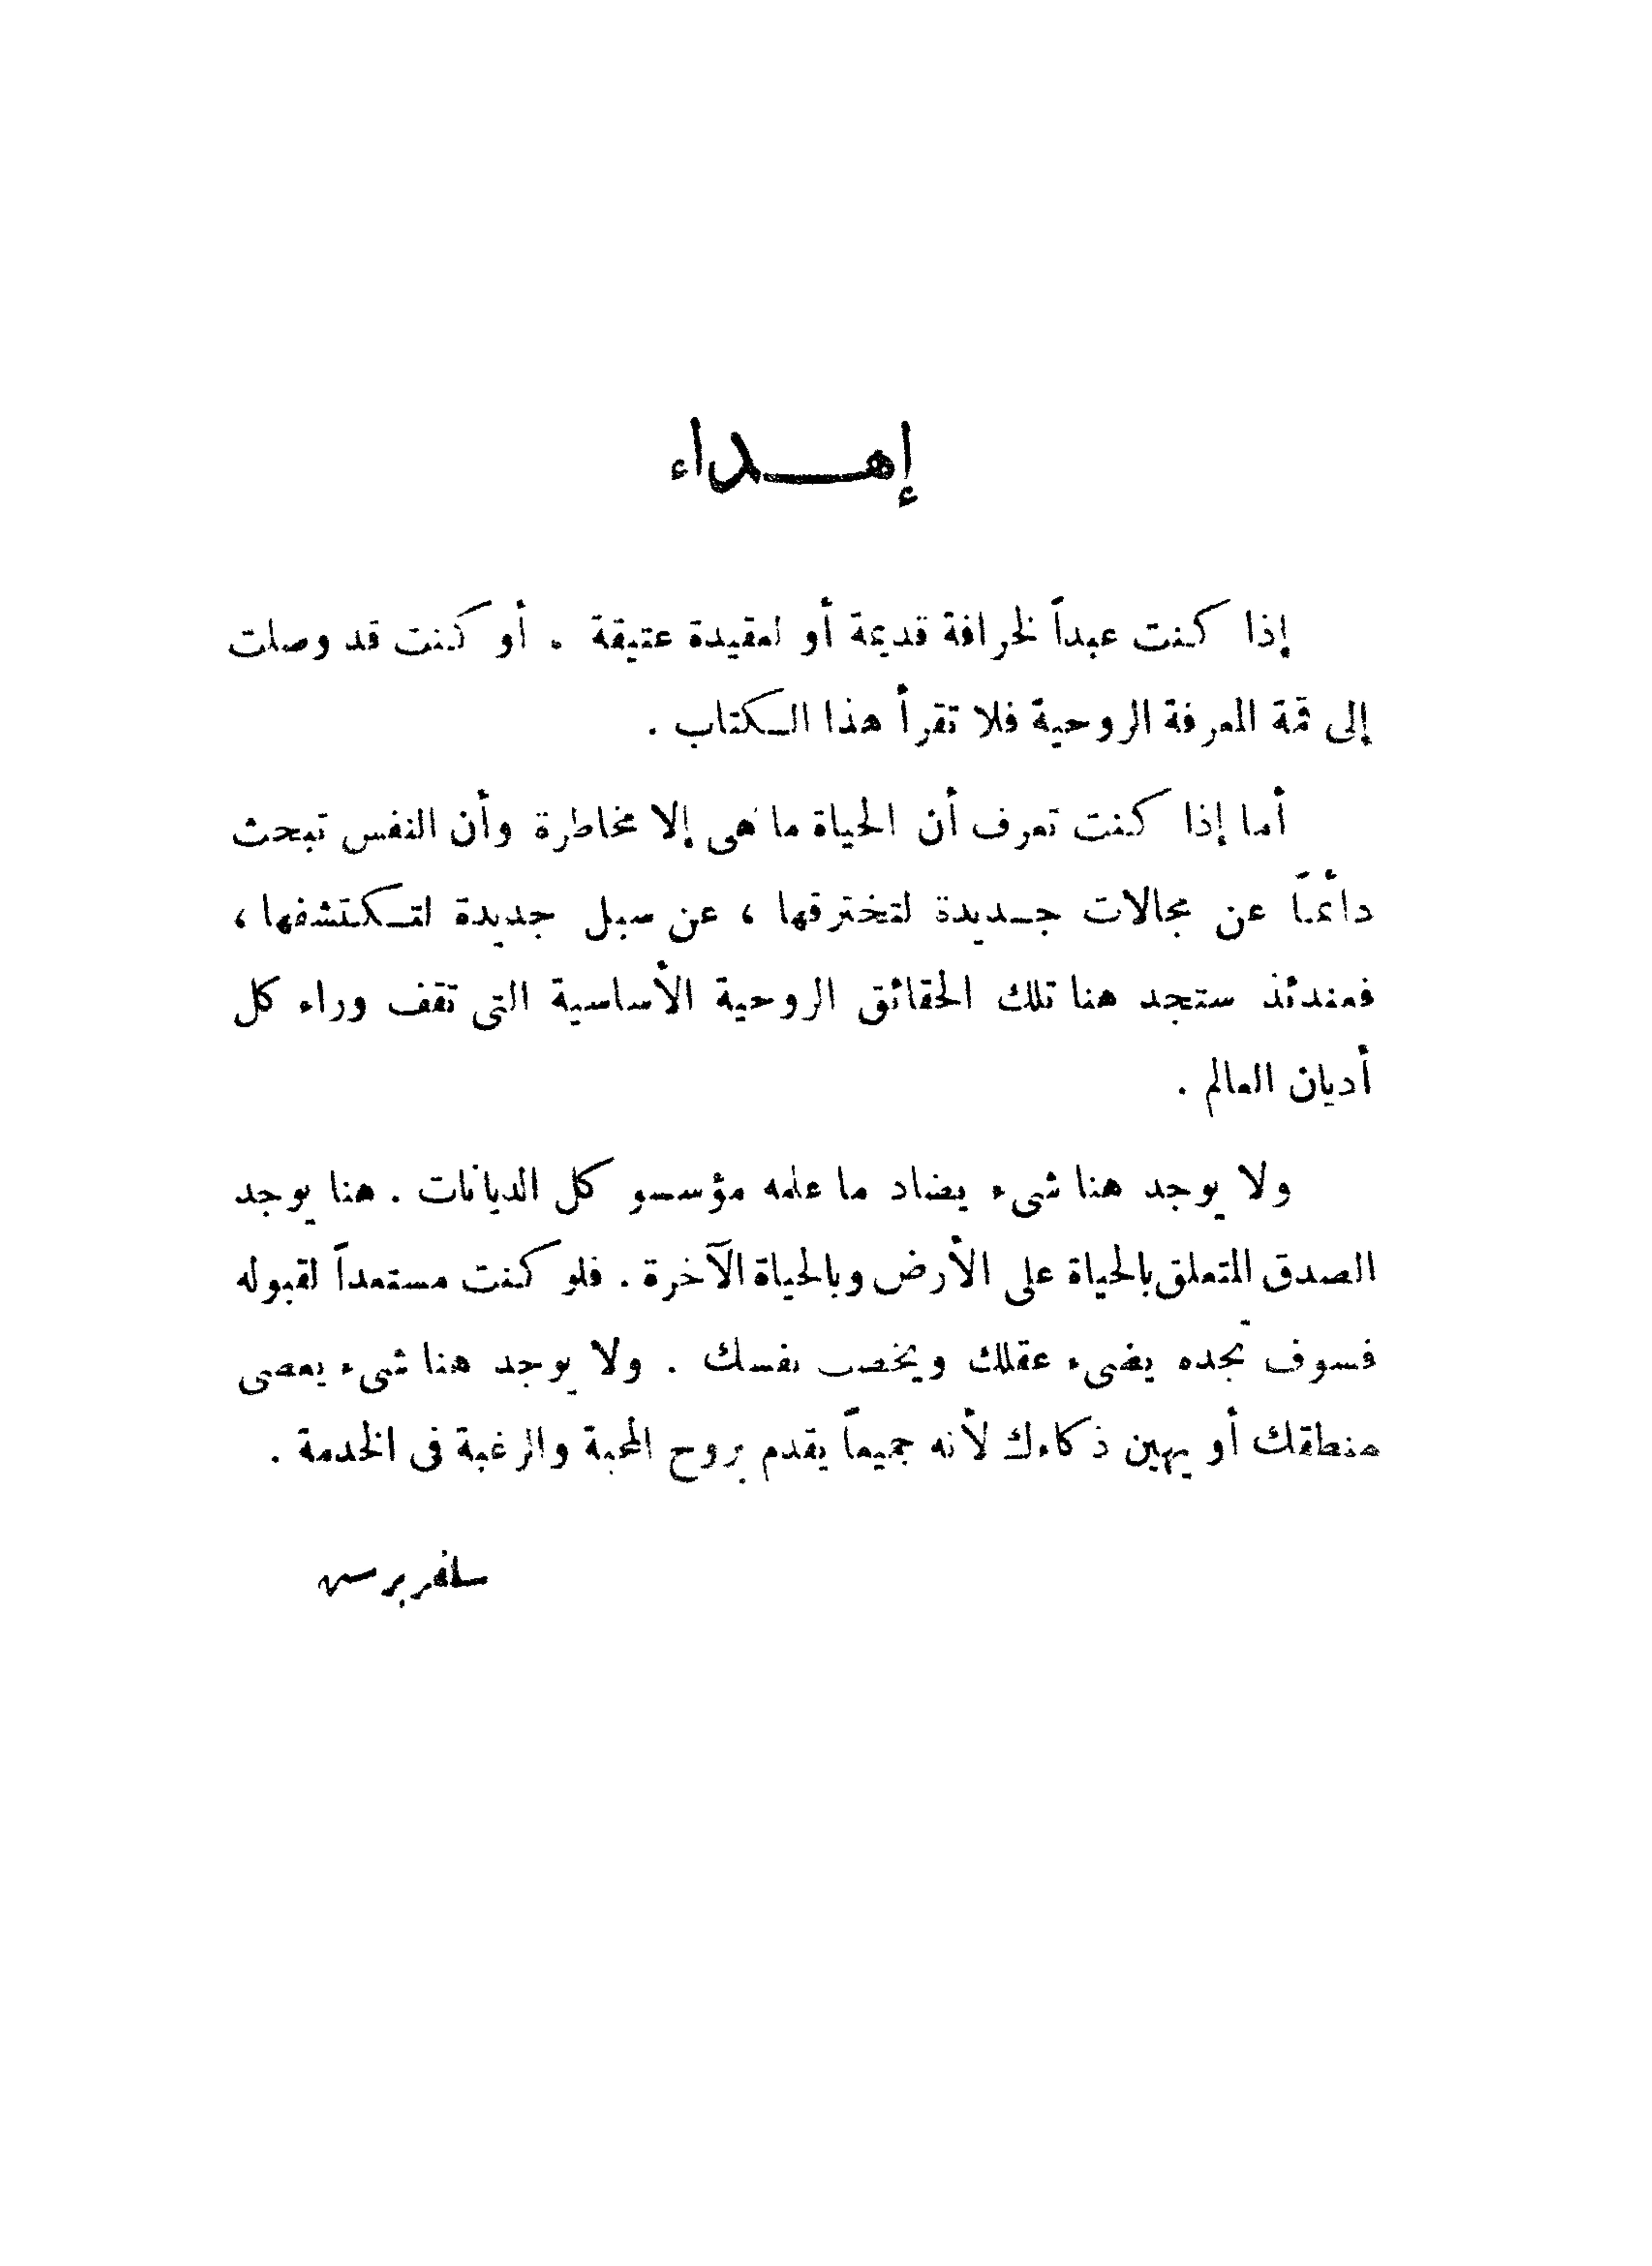 إهــداء
إذا كنت عبداً لخرافة قديمة أو لعقيدة عتيقة . أو كنت قد وصلت
إلى قمة المعرفة الروحية فلا تقرأ هذا الكتاب .
أما إذا كنت تعرف أن الحياة ما هى إلا مخاطرة وأن النفس تبحث
دائماً عن مجالات جديدة لتخترقها ، عن سبل جديدة لتكتشفها ،
فعندئذ ستجد هنا تلك الحقائق الروحية الأساسية التى تقف وراء كل
أديان العالم .
ولا يوجد هنا شىء يضاد ما علمه مؤسسو كل الديانات . هنا يوجد
الصدق المتعلق بالحياة على الأرض وبالحياة الآخرة . فلو كنت مستعداً لقبوله
فسوف تجده يضىء عقلك ويخصب نفسك . ولا يوجد هنا شىء يعصى
منطقك أو يهين ذكاءك لأنه جميعاً يقدم بروح المحبة والرغبة فى الخدمة .
سلفر برش